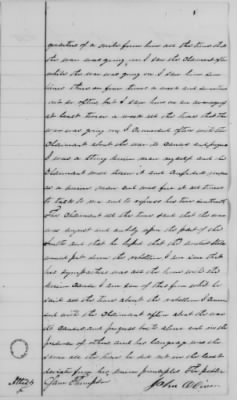 quarters of a mile from him all the time that
the war was going on. I saw the Claimant often
while the war was going on I saw him some
times three or four times a week and sometimes
not so often, but I saw him on an average
at least twice a week all the time that the
war was going on, I conversed often with the
Claimant about the war its causes and progress
I was a strong Union man myself and the
Claimant knew it and
as a Union man and was free at all times
to talk to me and to express his true sentiments
The Claimant all the time said that the war
was unjust and on the part of the
South and that he hoped that the United States
would put down the rebellion I am sure that
his sympathies was all the time with the
Union cause I am sure of this from what he
said all the time about the rebellion I convers
ed with the Claimant often about the war
its causes and progress both alone and in the
presence of others and his language was the
same all the time he did not in the least
deviate from his Union principles
John
Attest